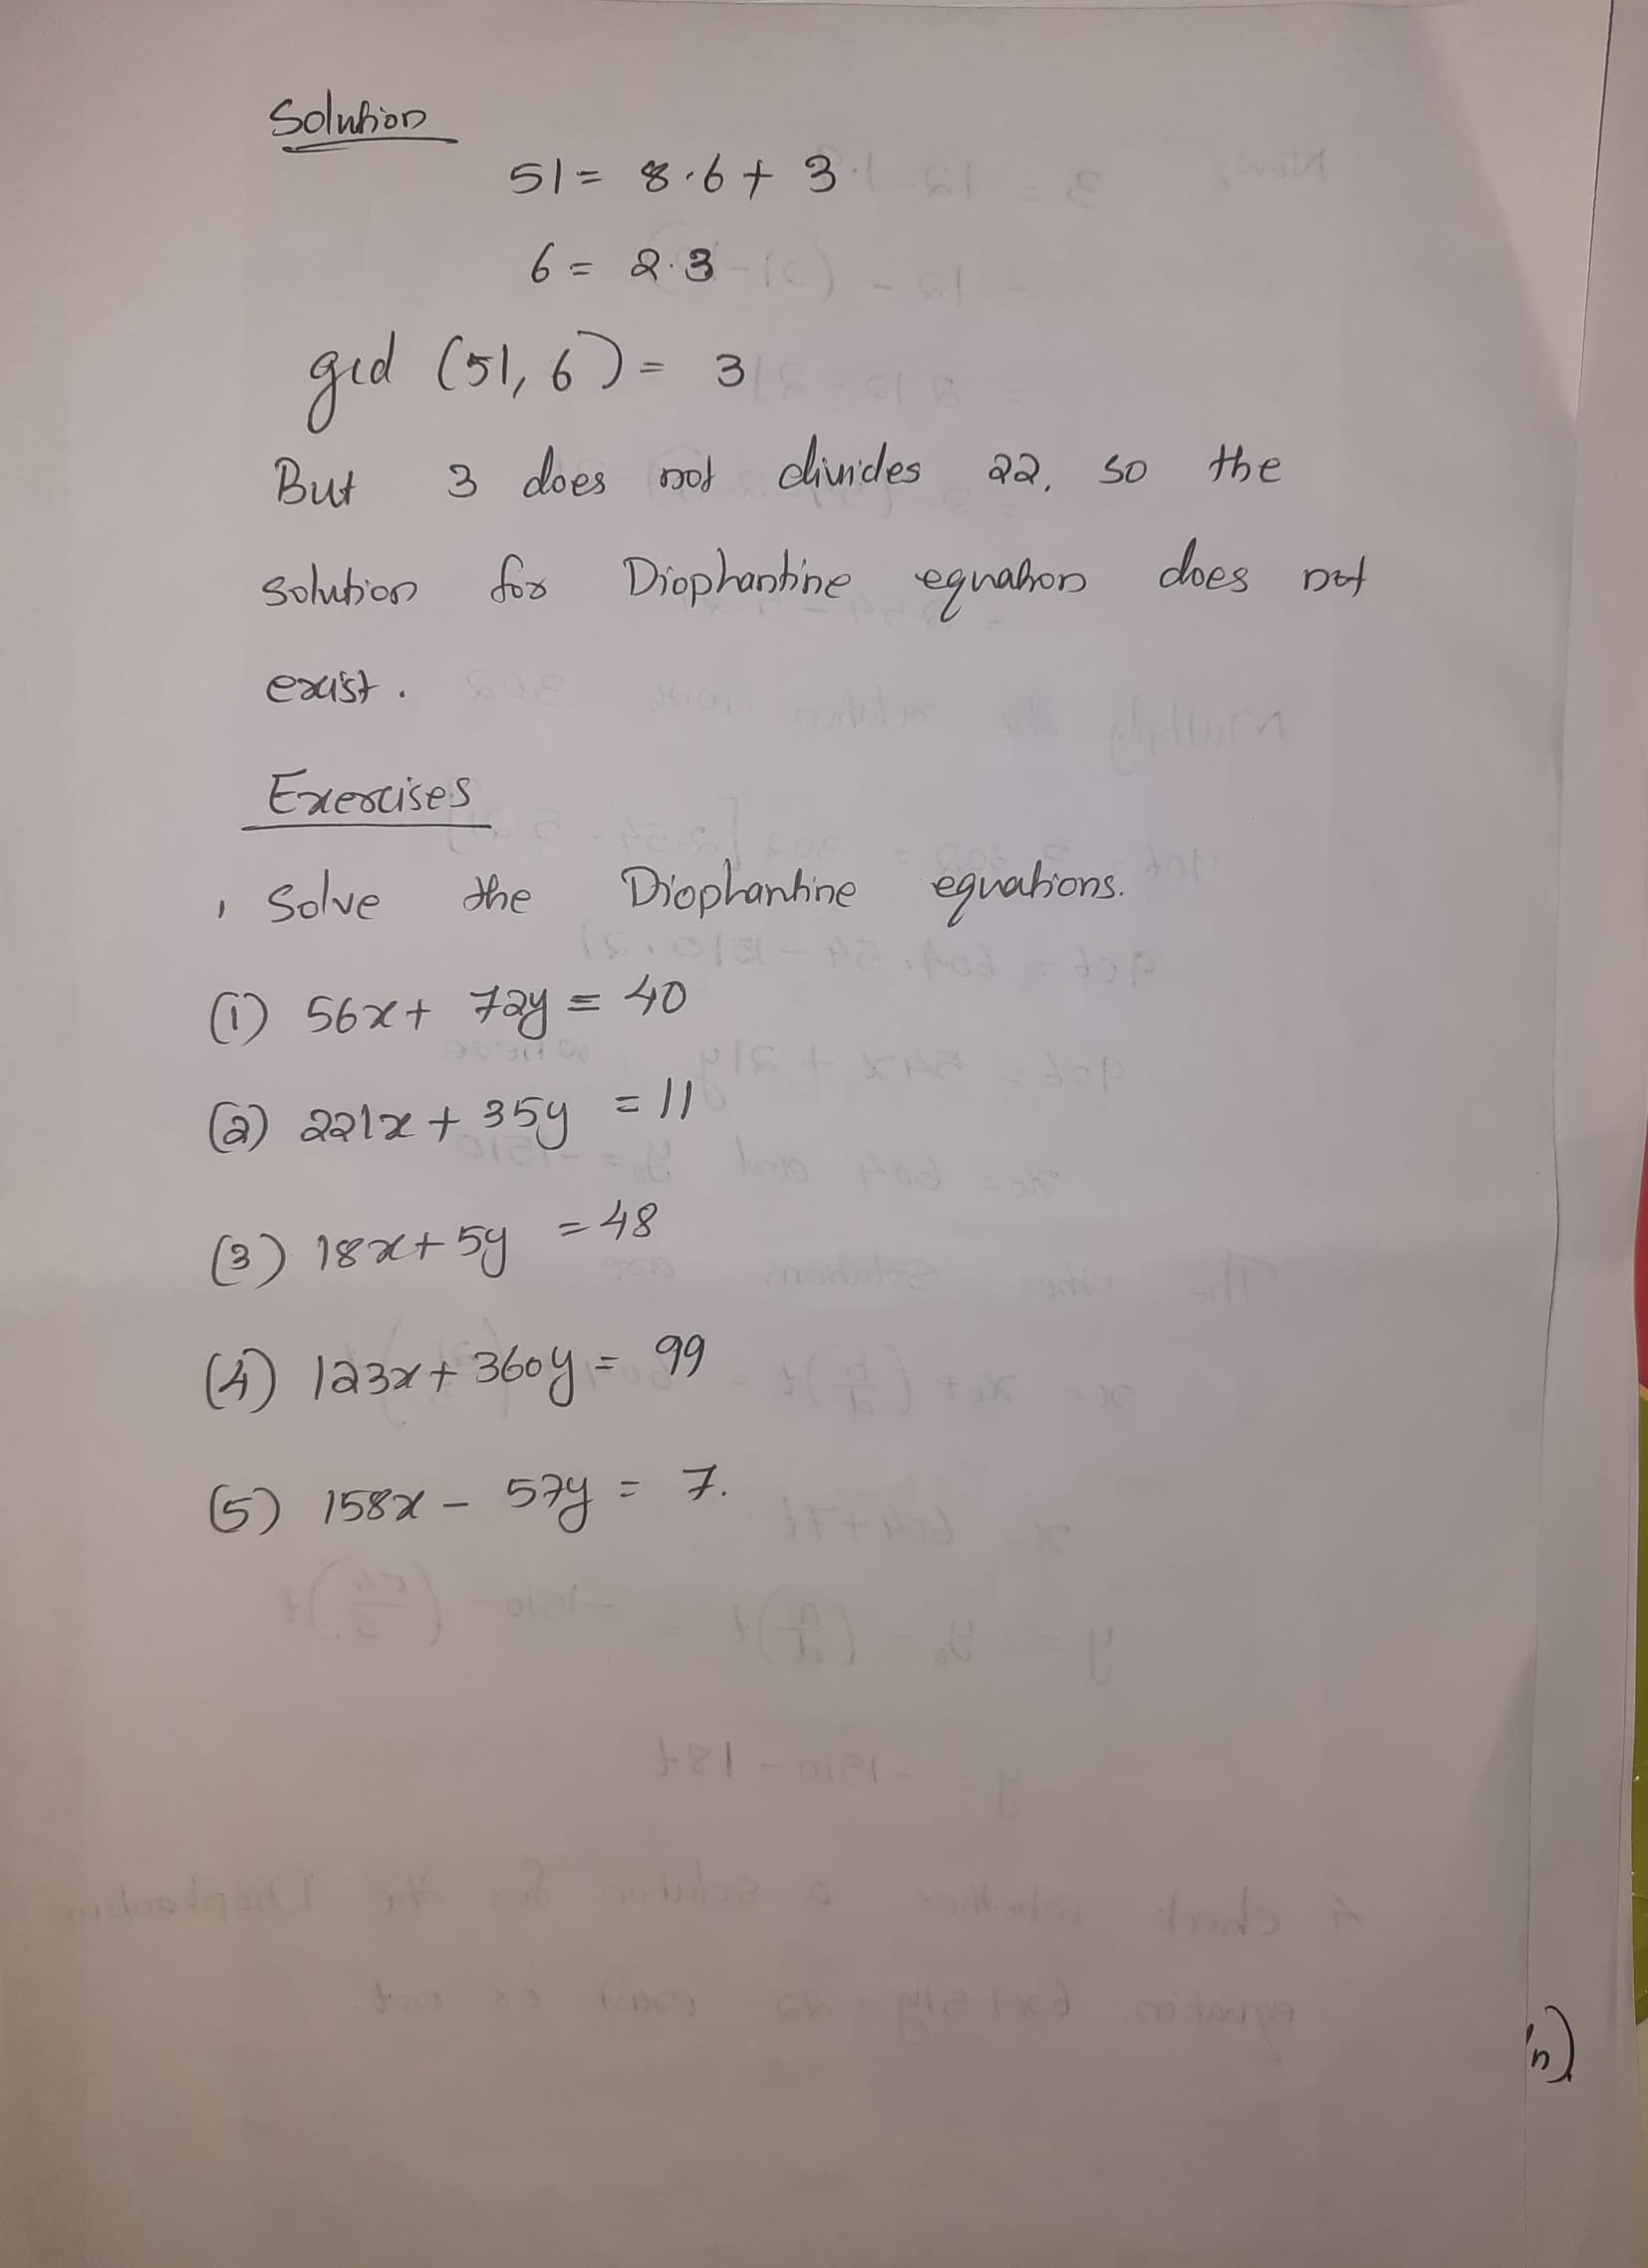 Solution
51 = 8·6 + 3
6 = 2·3
gcd (51, 6) = 3
But 3 does not divides 22, so the
solution for Diophantine equation does not
exist.
Exercises
, Solve the Diophantine equations.
(1) 56x + 72y = 40
(2) 221x + 35y = 11
(3) 18x + 5y = 48
(4) 123x + 360y = 99
(5) 158x - 57y = 7.